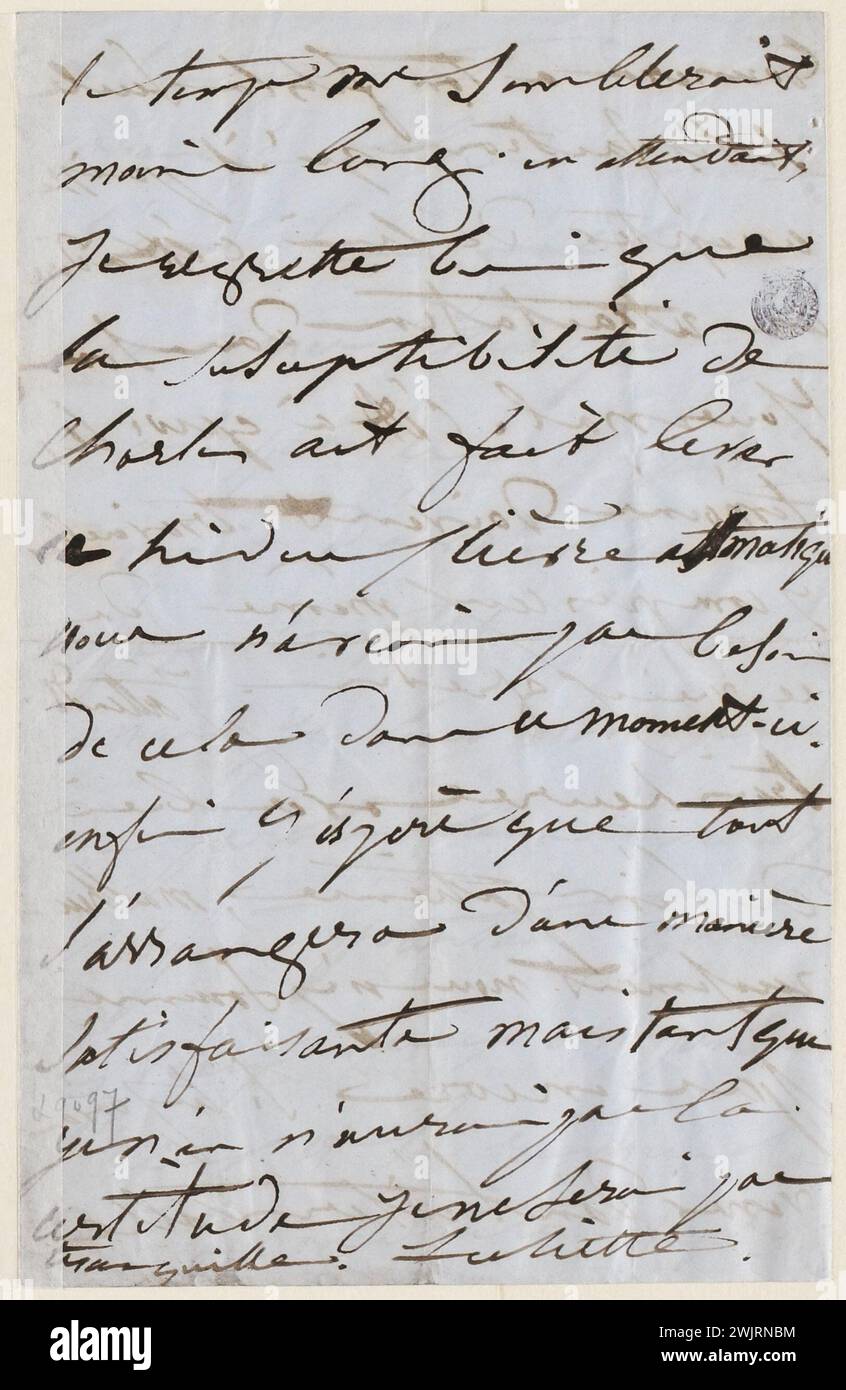 le temps me semblerait
moins long. en attendant,
je regrette bien que
la susceptibilité de
Charles ait fait lever
le hideux lièvre asthmatique
nous n'avons pas besoin
de cela dans ce moment-ci.
enfin j'espère que tout
s'arrangera d'une manière
satisfaisante mais tant que
je n'en aurai pas la
certitude je ne serai pas
tranquille. Juliette.
L9097
alamy
Image ID: 2WJRNBM
www.alamy.com